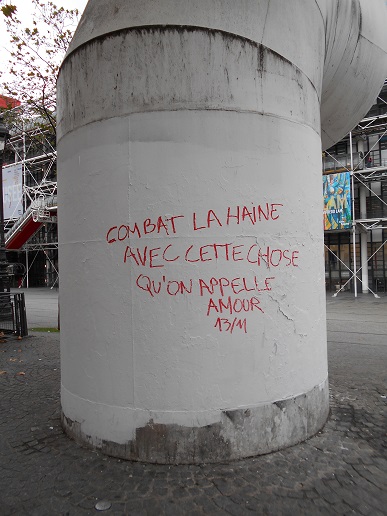 COMBAT LA HAINE
AVEC CETTE CHOSE
QU'ON APPELLE
AMOUR
13/11